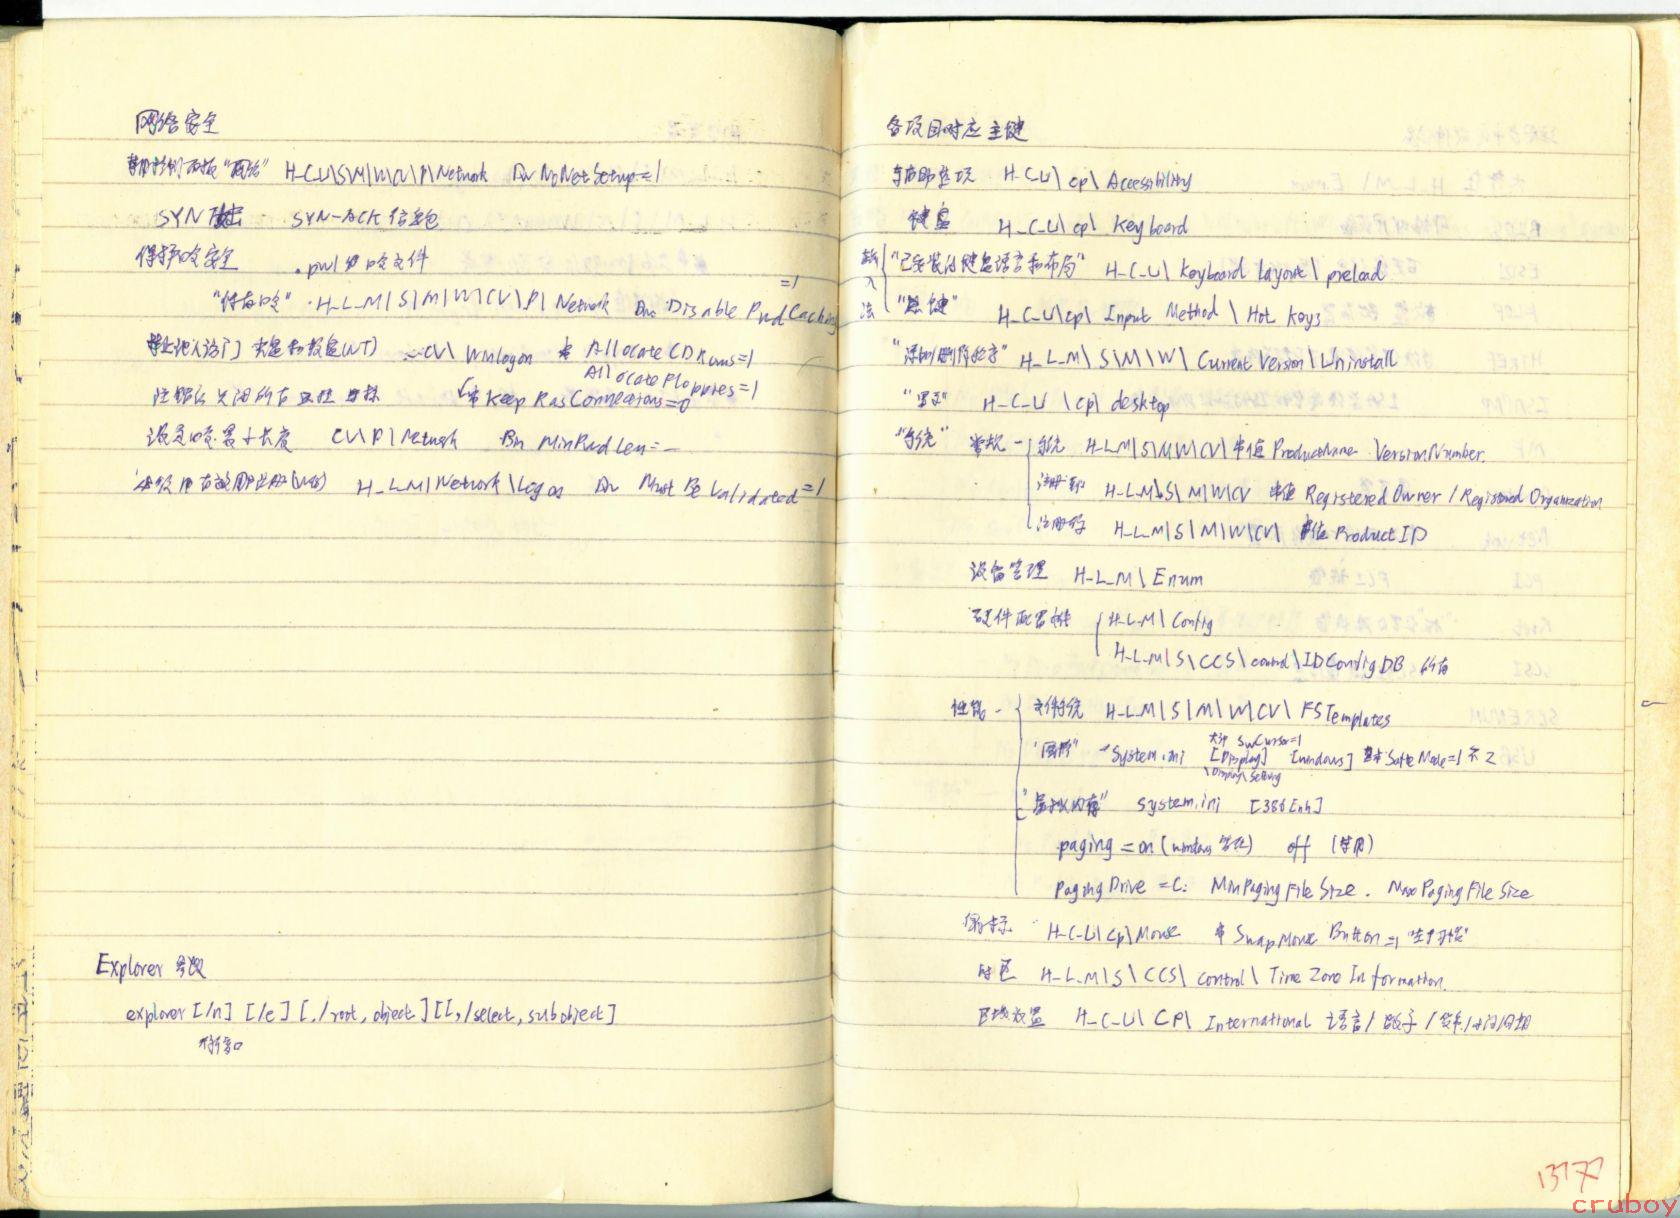 网络安全
禁用控制面板"网络" H_C_U\S\M\W\CV\P\Network Dw NoNetSetup=1
SYN SYN-ACK 信息包
保护口令安全 .pwl 为口令文件
"保存口令" H_L_M\S\M\W\CV\P\Network Dw Disable Pwd Caching =1
禁止他人访问 光盘和软盘(NT) \CV\Winlogon 串 Allocate CDRoms=1
Allocate Floppies=1
注销后关闭所有 串 Keep Ras Connections=0
设置口令最小长度 CV\P\Network Bin MinPwdLen=
H_L_M\Network\Logon Dw Must Be Validated=1
Explorer 参数
explorer [/n] [/e] [,/root, object] [[,/select, subobject]
各项目对应主键
辅助选项 H_C_U\cp\Accessibility
键盘 H_C_U\cp\Keyboard
输入法
"已安装的键盘语言和布局" H_C_U\Keyboard Layout\preload
"热键" H_C_U\cp\Input Method\Hot Keys
"添加删除程序" H_L_M\S\M\W\Current Version\Uninstall
H_C_U\cp\desktop
"系统" 常规 - 系统 H_L_M\S\M\W\CV\串值 ProductName VersionNumber.
注册到 H_L_M\S\M\W\CV 串值 Registered Owner / Registered Organization
注册号 H_L_M\S\M\W\CV\ 串值 Product ID
设备管理 H_L_M\Enum
硬件配置文件 H_L_M\Config
H_L_M\S\CCS\control\IDConfigDB 所有
性能 - 文件系统 H_L_M\S\M\W\CV\FSTemplates
"图形" System.ini [Display] SwCursor=1 [windows] SafeMode=1 不 2
\Display\Setting
"虚拟内存" system.ini [386Enh]
paging=on (windows 管理) off (禁用)
PagingDrive=C: MinPagingFileSize. MaxPagingFileSize
鼠标 H_C_U\cp\Mouse 串 SwapMouse Button=1 "左手习惯"
时区 H_L_M\S\CCS\control\Time Zone Information.
区域设置 H_C_U\CP\International 语言/数字/货币/时间/日期
13177
cruboy